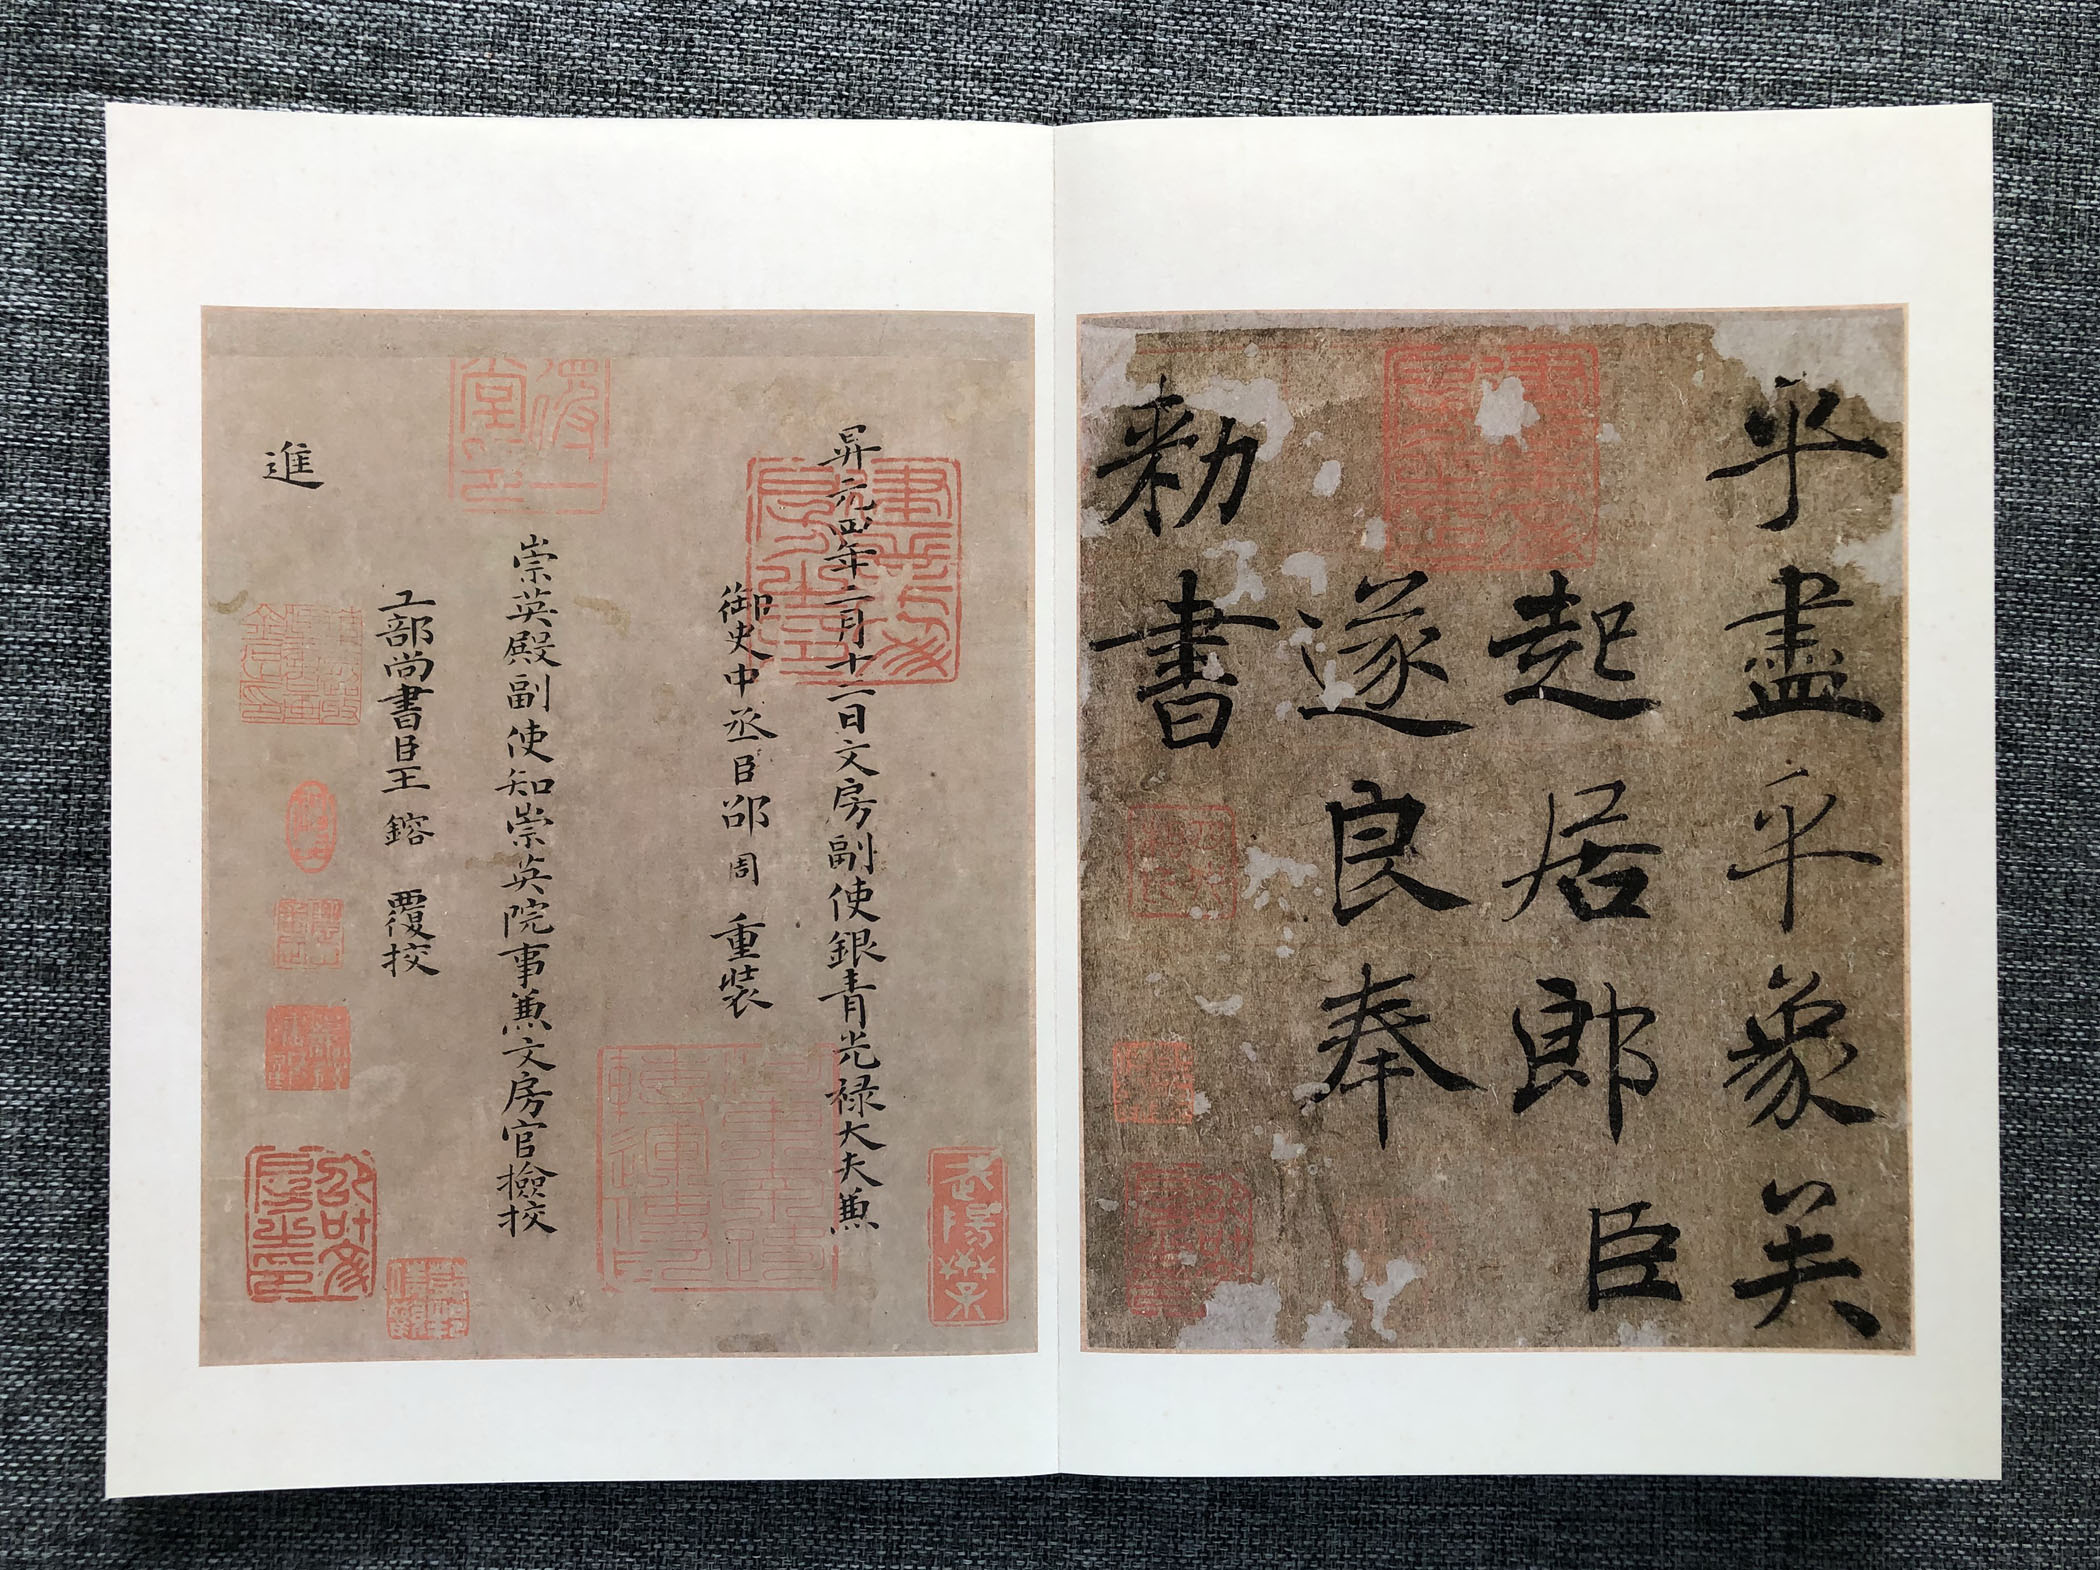 乎盡乎象矣
起居郎臣
遂良奉
勑書
昇元四年二月十二日文房副使銀青光禄大夫兼
御史中丞臣邵周重裝
崇英殿副使知崇英院事兼文房官撿挍
工部尚書臣王鎔覆挍
進
建業文房之印